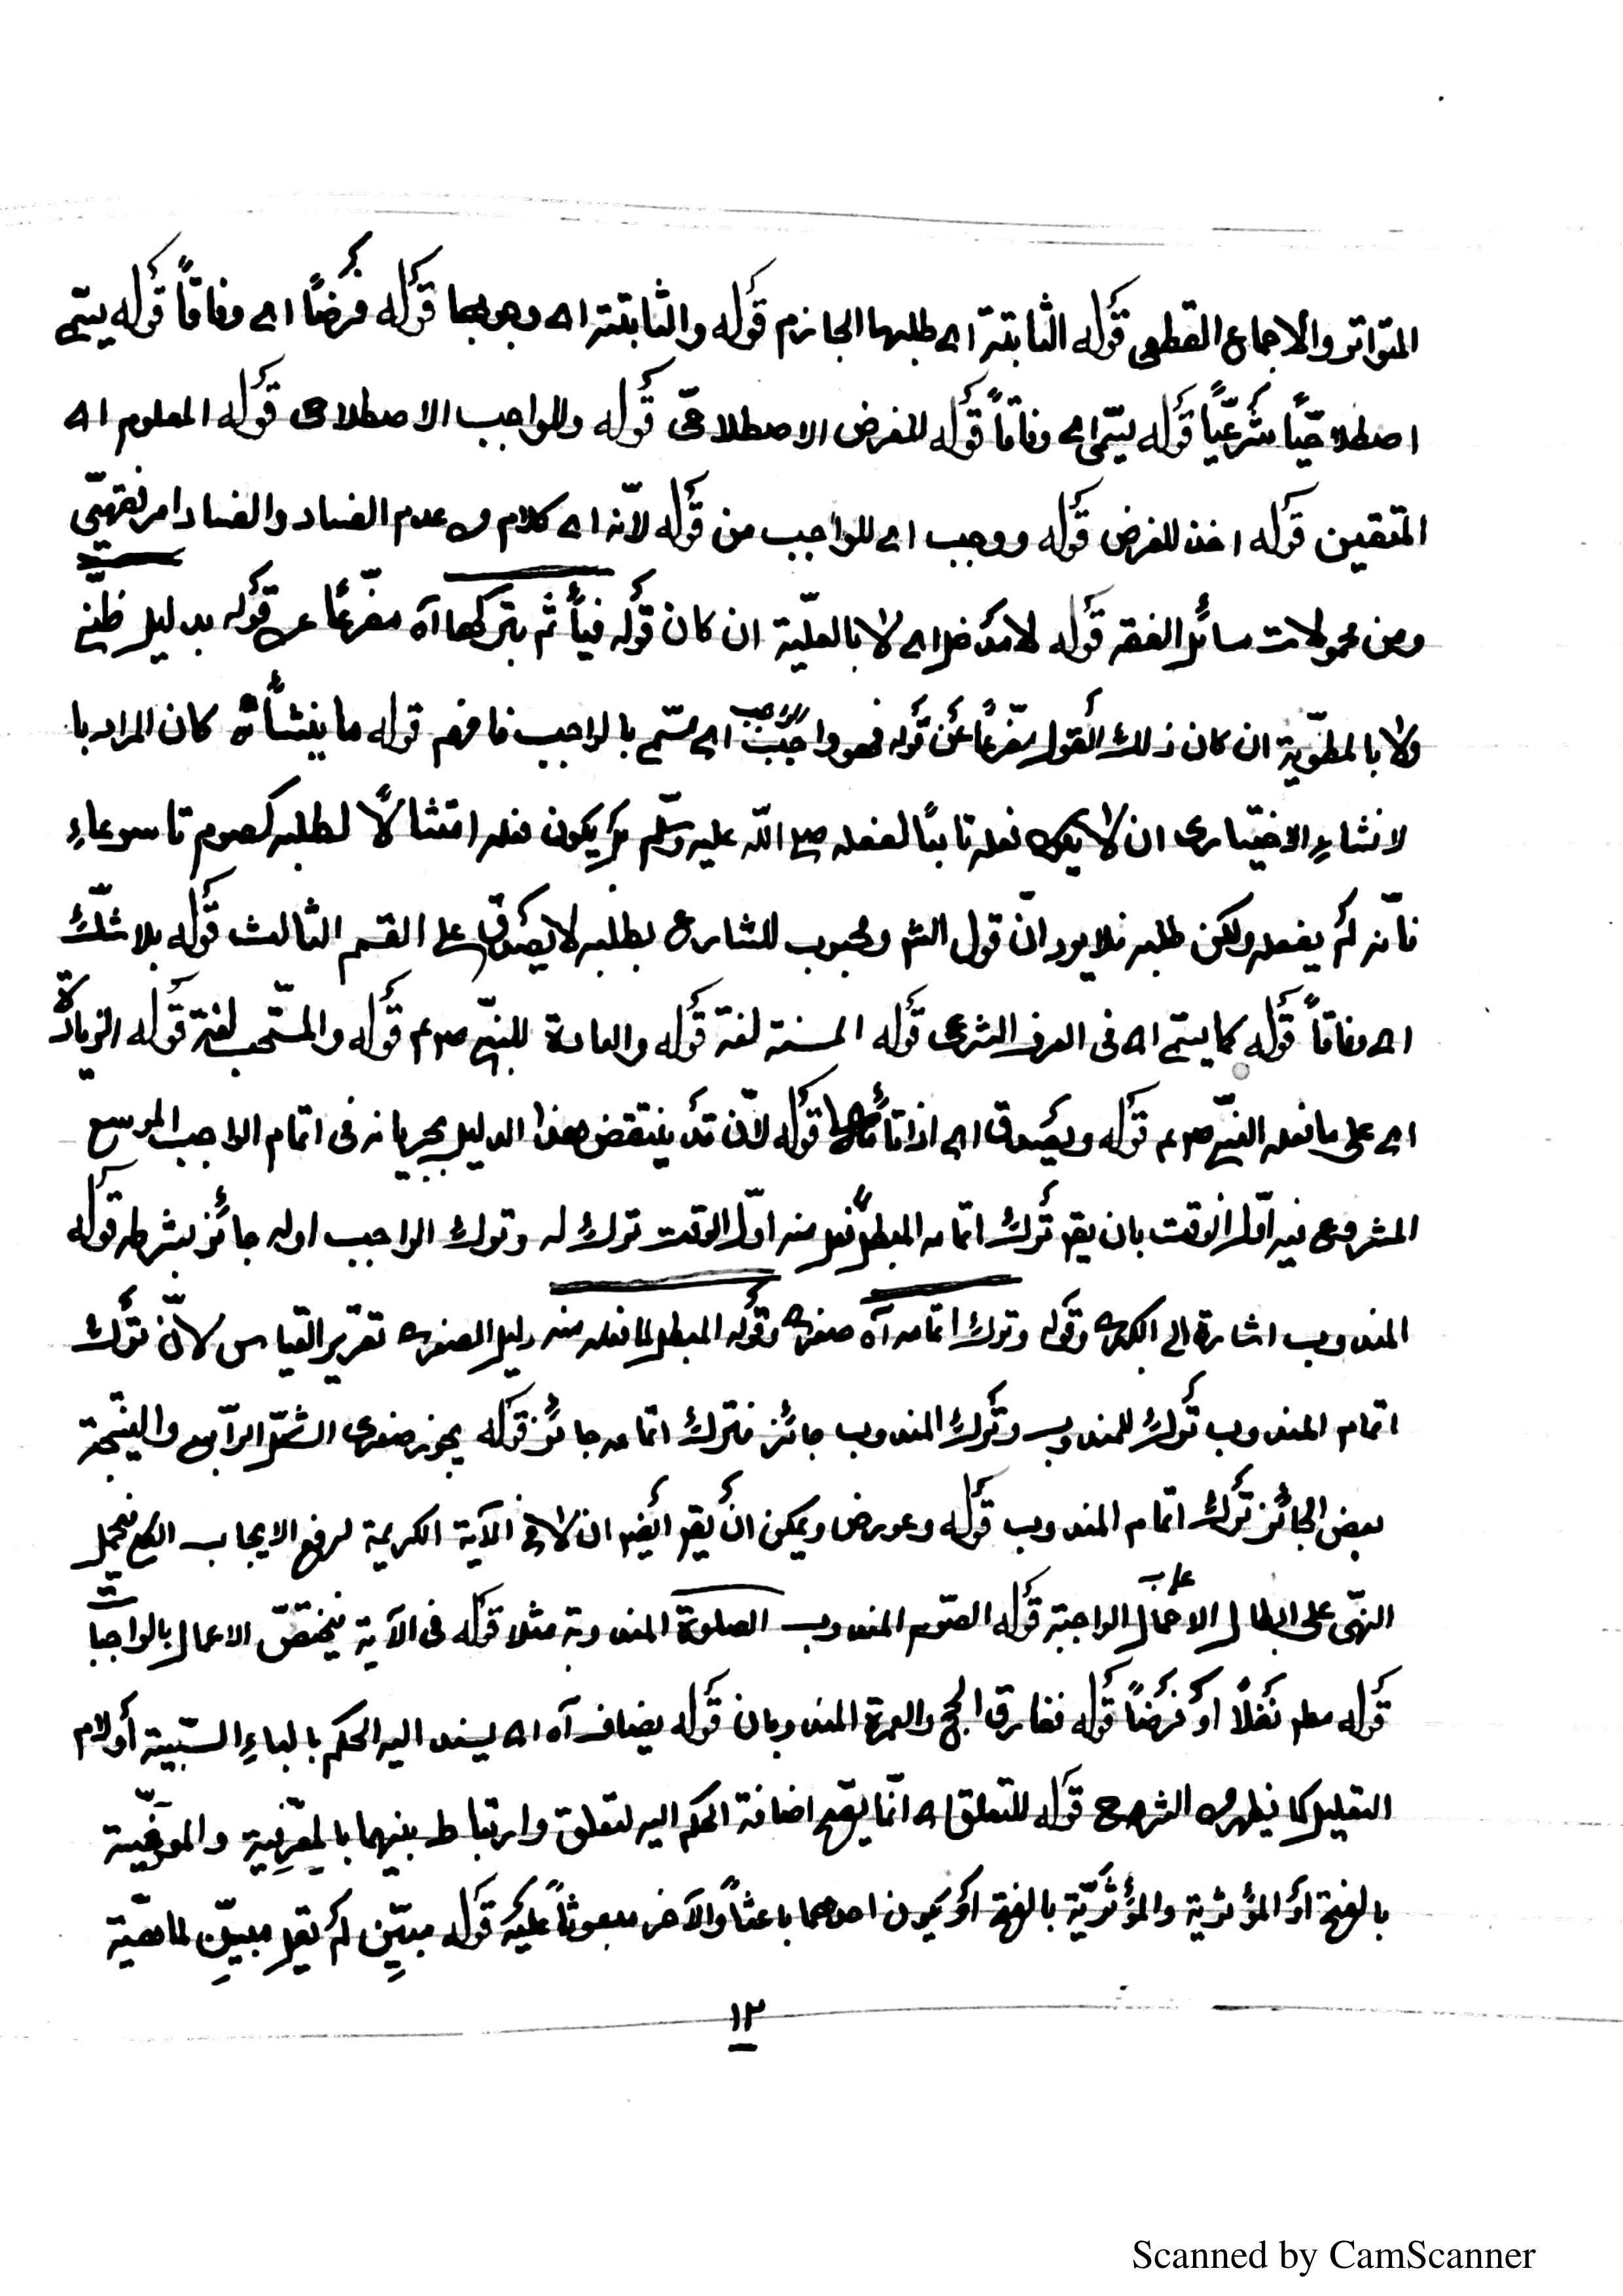 المتواتر والاجماع القطعى قوله الثابتة اى طلبها الجازم قوله والثابتة اى وجوبها قوله فرضًا اى وفاقًا قوله يسمّى
اصطلاحيًّا شرعيًّا قوله يسمّى اى وفاقًا قوله للفرض الاصطلاحىّ قوله وللواجب الاصطلاحى قوله المعلوم اى
المتيقن قوله اخذ للفرض قوله ووجب اى للواجب من قوله لانّه اى كلام فى عدم الفساد والفساد امر فقهىّ
ومن محمولات مسائل الفقه قوله لا مدخل اى لا بالعليّة ان كان قوله فيأثم بتركها آه مفرعًا عن قوله بدليل ظنّى
ولا بالمطويّة ان كان ذلك القول مفرّعًا عن قوله فهو واجب اى يسمّى بالواجب فافهم قوله ما ينشأه كان المراد با
لانشاءِ الاختيارى ان لا يكون فعله تابعًا لفعله صلى اللّه عليه وسلّم بل يكون فعله امتثالًا لطلبه كصوم تاسوعاءِ
فانّه لم يفعله ولكن طلبه فلا يرد انّ قول الشم ومحبوب للشارع بطلبه لا يصدق على القسم الثالث قوله بلا شكّ
اى وفاقًا قوله كما يسمّى اى فى العرف الشرعى قوله السنة لغة قوله والعادة للنبىّ صوم قوله والمستحب لغة قوله الزيادة
اى على ما فعله النبىّ صوم قوله ويصدق اى اذا قوله لانّ قد ينتقض هذا الدليل بجريانه فى اتمام الواجب الموسع
المشروع فيه اوّل الوقت بان يقو ترك اتمامه المبطل لفعل منه اوّل الوقت ترك له وترك الواجب اوله جائز بشرطه قوله
المندوب اشارة الى الكبرى وقوله وترك اتمامه آه صغرى وقوله المبطل لما فعله منه دليل الصغرى تقرير القياس لانّ ترك
اتمام المندوب ترك للمندوب وترك المندوب جائز فترك اتمامه جائز قوله يجوز صغرى الشكل الرّابع والنتيجة
بعض الجائز ترك اتمام المندوب قوله وعورض ويمكن ان يقو ايضم ان لا فى الآية الكريمة لرفع الايجاب الكلى فيحمل
النهى على ابطال الاعمال الواجبة قوله الصّوم المندوب الصلوة المندوبة مثلا قوله فى الآية فيختصّ الاعمال بالواجبات
قوله مطم نفلًا او فرضًا قوله ففارق الحج والعمرة المندوبان قوله يضاف آه اى يسند اليه الحكم بالباءِ السّببيّة أو لام
التعليل كما يظهر من الشرح قوله للتعلق اى انّما يصحّ اضافة الحكم اليه لتعلق وارتباط بينهما بالمعرِّفية والمعرَّفيّة
بالفتح او المؤثرية والمؤثريّة بالفتح او يكون احدهما باعثًا والآخر مبعوثًا عليه قوله مبيّن لم يقل مبيّن لماهيّة
١٢
Scanned by CamScanner